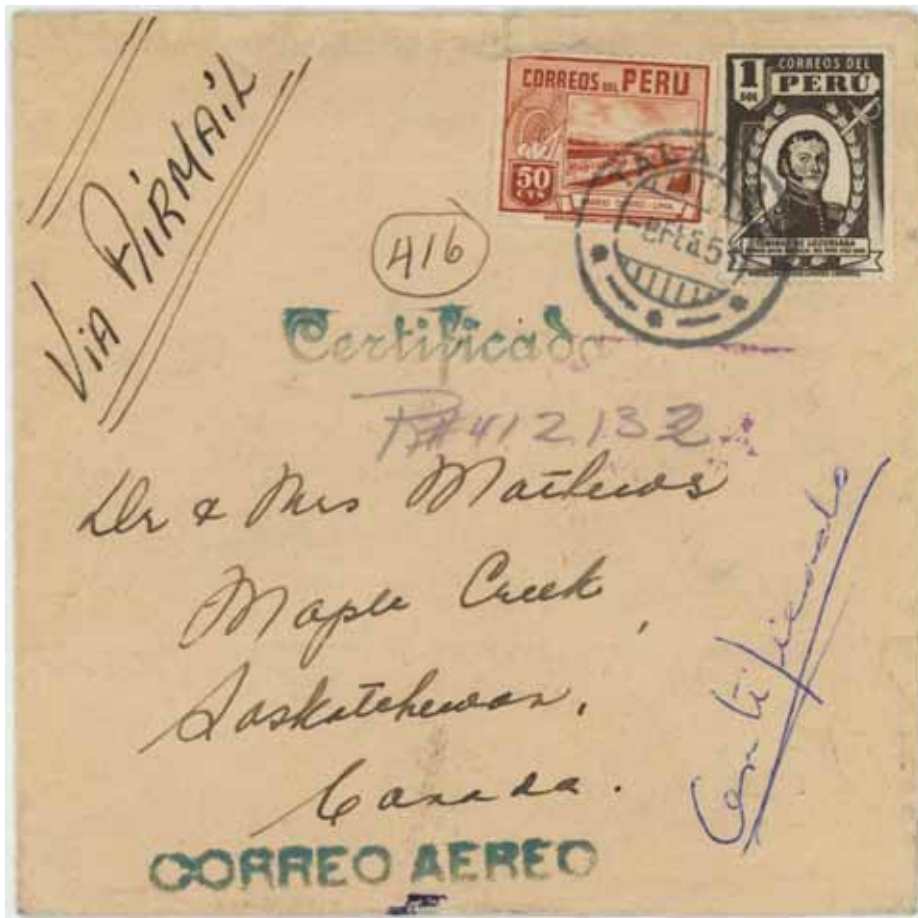 Via AIRMAIL
CORREOS DEL PERU
50
CTS
CORREOS DEL
PERU
1
SOL
416
Certificada
R#412132
Dr & Mrs Mathews
Maple Creek,
Saskatchewan,
Canada.
Certificado
CORREO AEREO